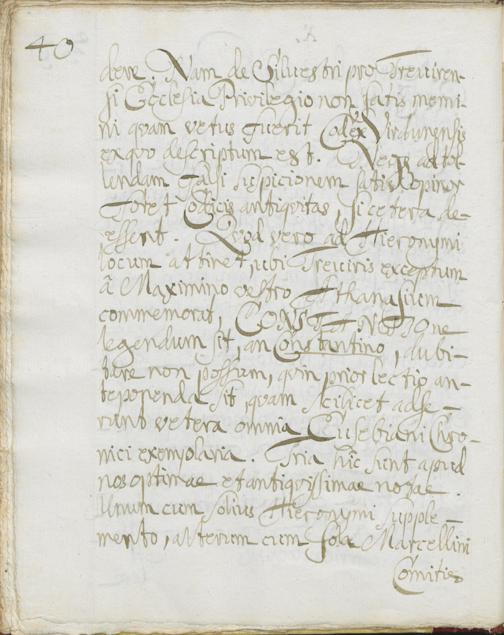 40
dere. Nam de Silvestri pro Treviren-
si Ecclesia Privilegio non satis memi-
ni quam vetus fuerit Codex Virdunensis
ex quo descriptum est. Neque ad tol-
lendam falsi suspicionem satis opinor
potest Codicis antiquitas, si cetera de-
essent. Quod vero ad Hieronymi
locum attinet, ubi Treviris exceptum
à Maximino vestro Athanasium
commemorat, CONSTANTIONE
legendum sit, an Constantino, dubi-
tare non possum, quin prior lectio an-
teponenda sit, quam scilicet adse-
runt vetera omnia Eusebiani Chro-
nici exemplaria. Tria hîc sunt apud
nos optimae et antiquissimae notae.
Unum cum solius Hieronymi supple-
mento, alterum cum sola Marcellini
Comitis